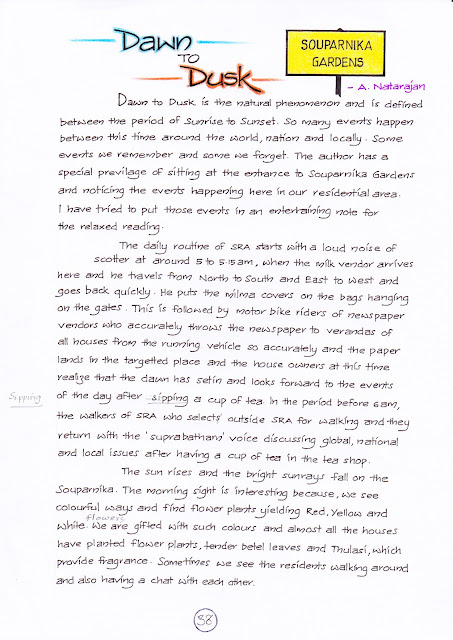 Dawn
TO
Dusk
SOUPARNIKA
GARDENS
- A. Natarajan
Dawn to Dusk is the natural phenomenon and is defined
between the period of Sunrise to Sunset. So many events happen
between this time around the world, nation and locally. Some
events we remember and some we forget. The author has a
special previlage of sitting at the entrance to Souparnika Gardens
and noticing the events happening here in our residential area.
I have tried to put those events in an entertaining note for
the relaxed reading.
The daily routine of SRA starts with a loud noise of
scotter at around 5 to 5.15am, when the milk vendor arrives
here and he travels from North to South and East to West and
goes back quickly. He puts the milma covers on the bags hanging
on the gates. This is followed by motor bike riders of newspaper
vendors who accurately throws the newspaper to verandas of
all houses from the running vehicle so accurately and the paper
lands in the targetted place and the house owners at this time
realise that the dawn has setin and looks forward to the events
Sipping
of the day after sipping a cup of tea. In the period before 6am,
the walkers of SRA who selects outside SRA for walking and they
return with the 'suprabatham' voice discussing global, national
and local issues after having a cup of tea in the tea shop.
The sun rises and the bright sunrays fall on the
Souparnika. The morning sight is interesting because, we see
colourful ways and find flower plants yielding Red, Yellow and
flowers
White. We are gifted with such colours and almost all the houses
have planted flower plants, tender betel leaves and Thulasi, which
provide fragrance. Sometimes we see the residents walking around
and also having a chat with each other.
38